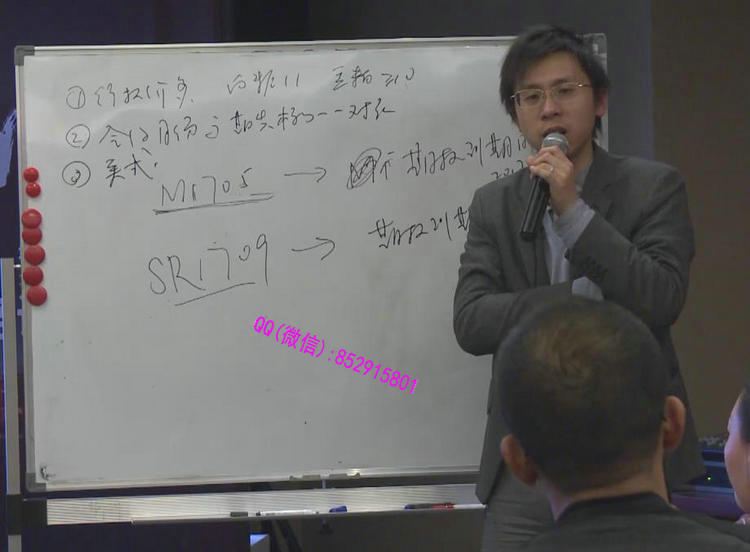 ① 行权价多 白糖11 豆粕≥10
② 合约月份与期货标的一一对应
③ 美式.
M1705 → 期权到期
SR1709 → 期权到期
QQ(微信):852915801